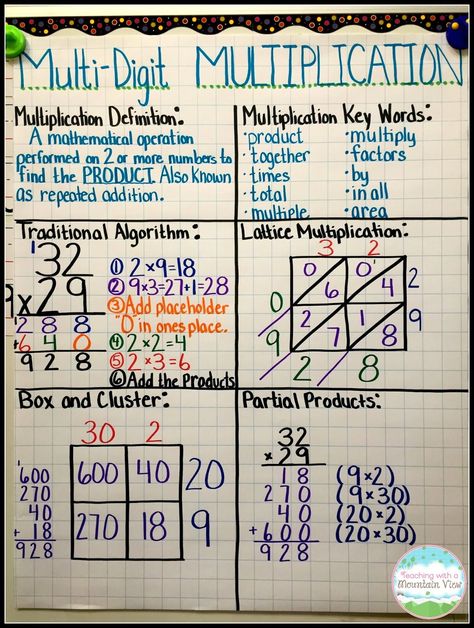 Multi-Digit MULTIPLICATION
Multiplication Definition:
A mathematical operation
performed on 2 or more numbers to
find the PRODUCT. Also Known
as repeated addition.
Multiplication Key Words:
·product ·multiply
·together ·factors
·times ·by
·total ·in all
·multiple ·area
Traditional Algorithm:
1
32
×29
1
288
+640
928
9
① 2×9=18
② 9×3=27+1=28
③ Add placeholder
"0" in ones place.
④ 2×2=4
⑤ 2×3=6
⑥ Add the Products
Lattice Multiplication:
3 2
0 6 0 4 2
0
2 7 1 8 9
9
2 8
Box and Cluster:
30 2
600 40 20
270 18 9
1
600
270
40
+18
928
Partial Products:
32
×29
18 (9×2)
270 (9×30)
40 (20×2)
+600 (20×30)
928
Teaching with a
Mountain View